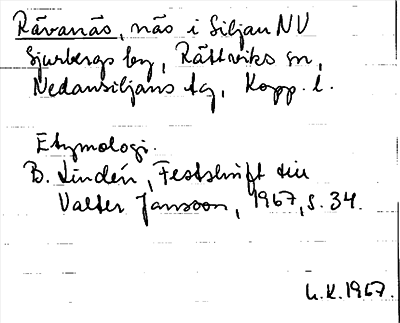 Rävanäs, näs i Siljan NV
Sjurbergs by, Rättviks sn,
Nedansiljans tg, Kopp. l.
Etymologi.
B. Lindén, Festskrift till
Valter Jansson, 1967, s. 34.
L.K. 1967.